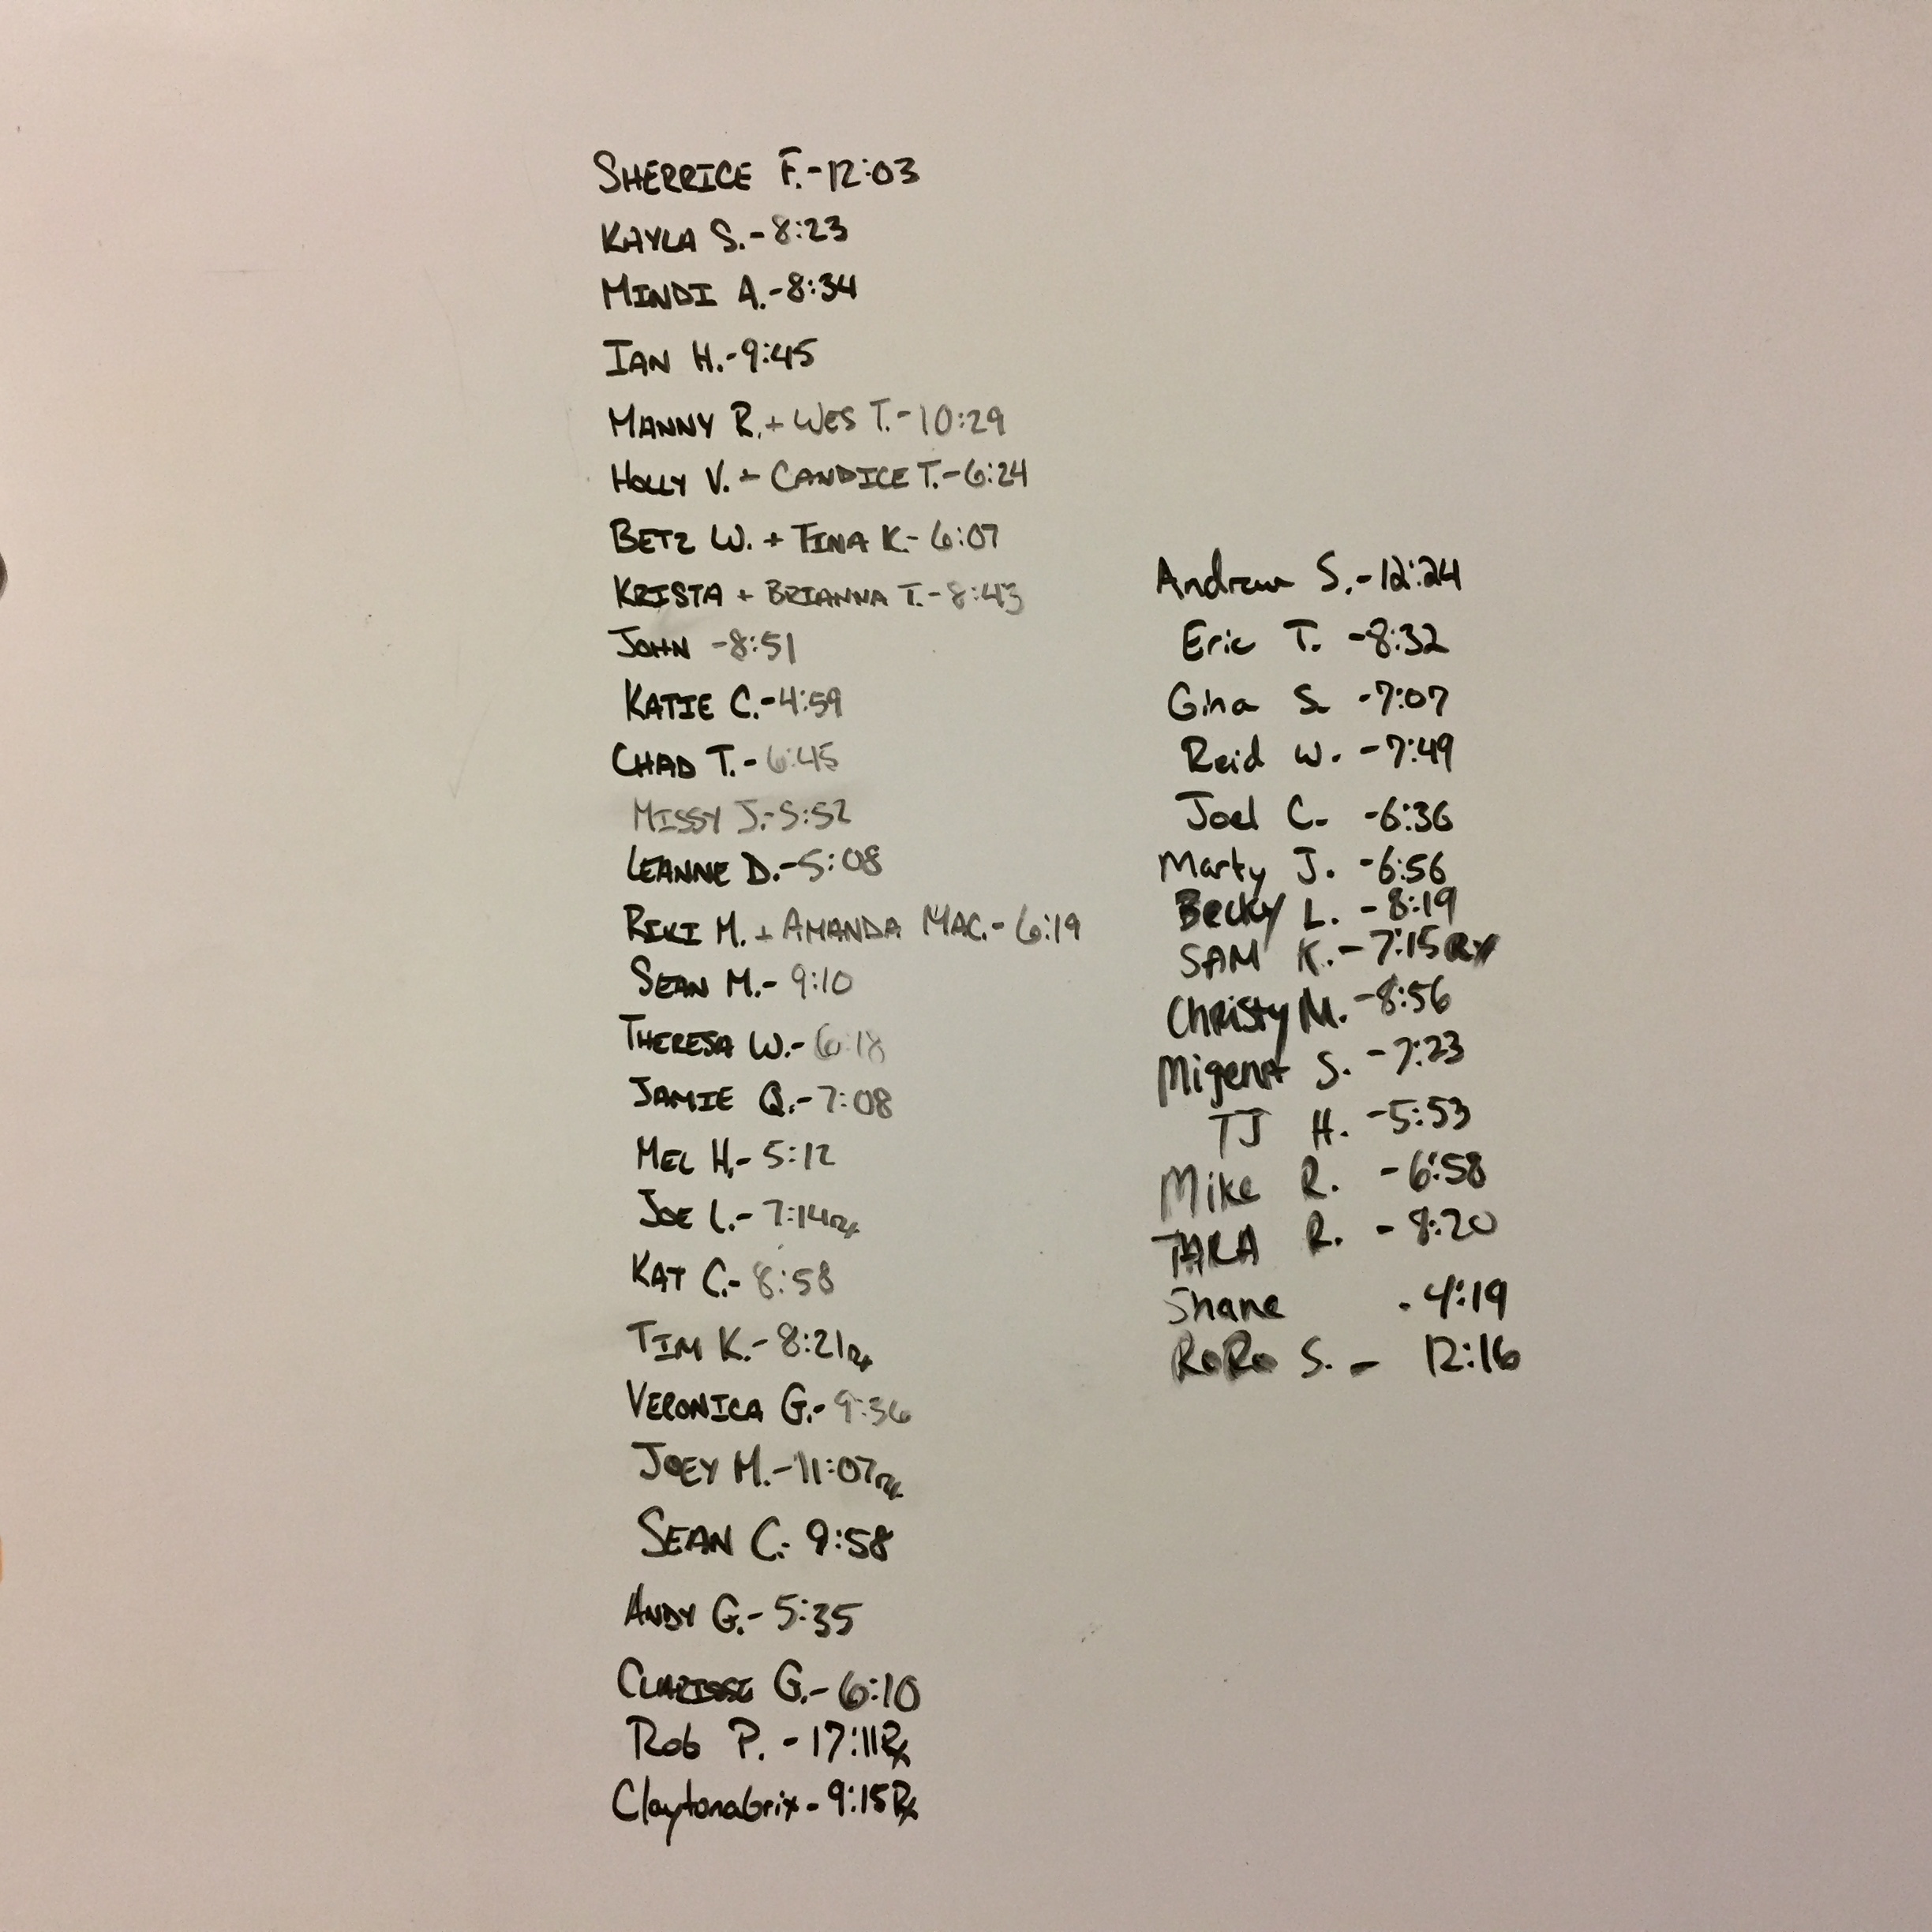 SHERRICE F.-12:03
KAYLA S.-8:23
MINDI A.-8:34
IAN H.-9:45
MANNY R.+ WES T.-10:29
HOLLY V. + CANDICE T.-6:24
BETZ W. + TINA K.-6:07
KRISTA + BRIANNA T.-8:43
JOHN -8:51
KATIE C.-4:59
CHAD T.-6:45
MISSY J.-5:52
LEANNE D.-5:08
RIKI M. + AMANDA MAC.-6:19
SEAN M.-9:10
THERESA W.-6:18
JAMIE Q.-7:08
MEL H.-5:12
JOE L.-7:14Rx
KAT C.-8:58
TIM K.-8:21Rx
VERONICA G.-9:36
JOEY M.-11:07Rx
SEAN C.-9:58
ANDY G.-5:35
CLARISSE G.-6:10
Rob P. -17:11Rx
Claytonabrix-9:15Rx
Andrew S.-12:24
Eric T. -8:32
Gina S. -7:07
Reid W. -7:49
Joel C. -6:36
Marty J. -6:56
Becky L. -8:19
SAM K.-7:15Rx
Christy M.-8:56
Migena S. -7:23
TJ H. -5:53
Mike R. -6:58
TARA R. -8:20
Shane - 4:19
RoRo S. - 12:16